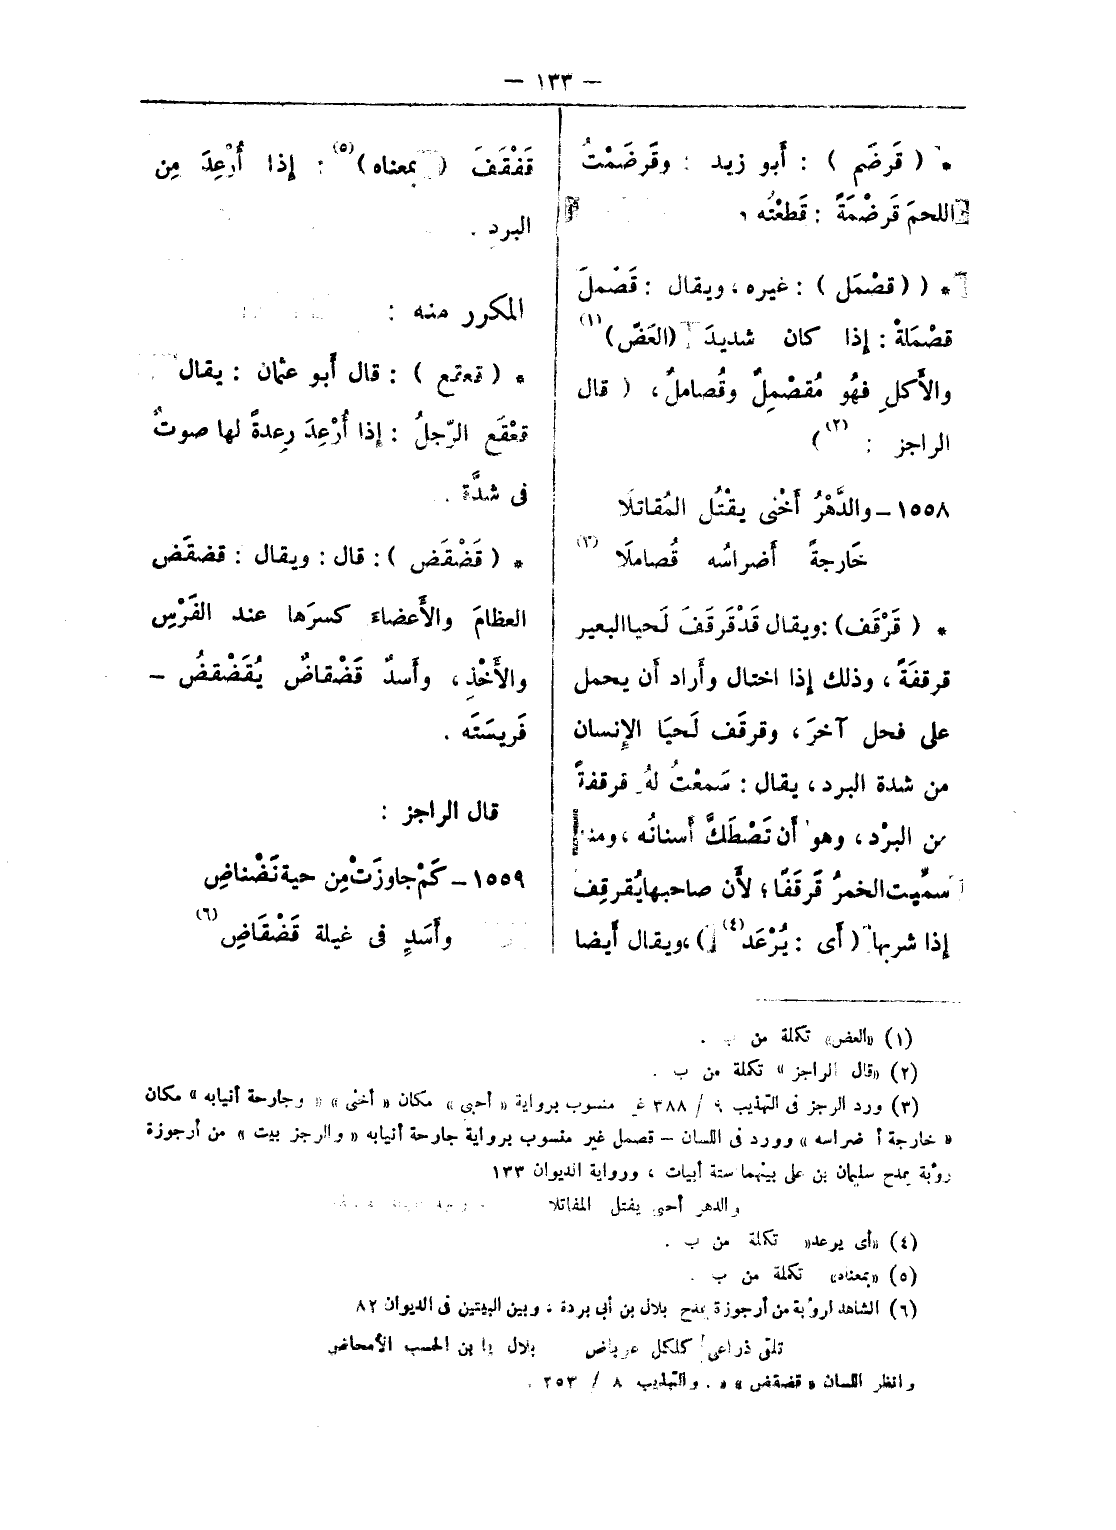 — ١٣٣ —
* ( قَرضَم ) : أَبو زيد : وقَرضَمْتُ
اللحمَ قَرضْمَةً : قَطعْتُه ،
* ( ( قصْمَل ) : غيره ، ويقال : قَصْملَ
قصْمَلةْ : إذا كان شديدَ (العَضّ)(١)
والأَكلِ فهُو مُقصْمِلٌ وقُصاملٌ ، ( قال
الراجز : )(٢)
١٥٥٨ – والدَّهْرُ أَخْنى يقْتُل المُقاتلَا
خَارجةً أَضراسُه قُصاملَا (٣)
* ( قَرْقَف ) : ويقال قَدْ قَرقَفَ لَحيا البعير
قرقفَةً ، وذلك إذا اختال وأَراد أَن يحمل
على فحل آخرَ ، وقرقَف لَحيَا الإِنسان
من شدة البرد ، يقال : سَمعْتُ لهُ قرقفةً
من البرْد ، وهو أَن تَصْطَكَّ أَسنانُه ، ومنه
سمِّيت الخمرُ قَرقَفًا ؛ لأَن صاحبها يُقرقِف
إذا شربها ( أَى : يُرْعَد(٤) ) ، ويقال أَيضا
قَفْقَفَ ( بمعناه )(٥) : إذا أُرْعِدَ مِن
البردِ .
المكرر منه :
* ( قعقع ) : قال أَبو عثمان : يقال
قعْقَع الرّجلُ : إذا أُرْعِدَ رِعدةً لها صوتٌ
فى شدَّة .
* ( قَضْقَض ) : قال : ويقال : قضقَض
العظامَ والأَعضاء كسرَها عند الفَرْسِ
والأَخْذِ ، وأَسدٌ قَضْقاضٌ يُقَضْقضُ –
فَريسَتَه .
قال الراجز :
١٥٥٩ – كَمْ جاوزَتْ مِن حية نَضْناضِ
وأَسَدٍ فى غيلة قَضْقَاضِ (٦)
(١) «العض» تكملة من ب .
(٢) «قال الراجز» تكملة من ب .
(٣) ورد الرجز فى التهذيب ٩ / ٣٨٨ غير منسوب برواية « أحبى » مكان « أخنى » « وجارحة أنيابه » مكان
« خارجة أضراسه » وورد فى اللسان – قصمل غير منسوب برواية جارحة أنيابه « والرجز بيت » من أرجوزة
رؤبة يمدح سليمان بن على بينهما ستة أبيات ، ورواية الديوان ١٣٣
والدهر أحبى يقتل المقاتلا
(٤) «أى يرعد» تكملة من ب .
(٥) «بمعناه» تكملة من ب .
(٦) الشاهد لرؤبة من أرجوزة يمدح بلال بن أبى بردة ، وبين البيتين فى الديوان ٨٢
تلقى ذراعى كلكل عرباض بلال يا بن الحسب الأمحاض
وانظر اللسان « قضقض » « . والتهذيب ٨ / ٢٥٣ .